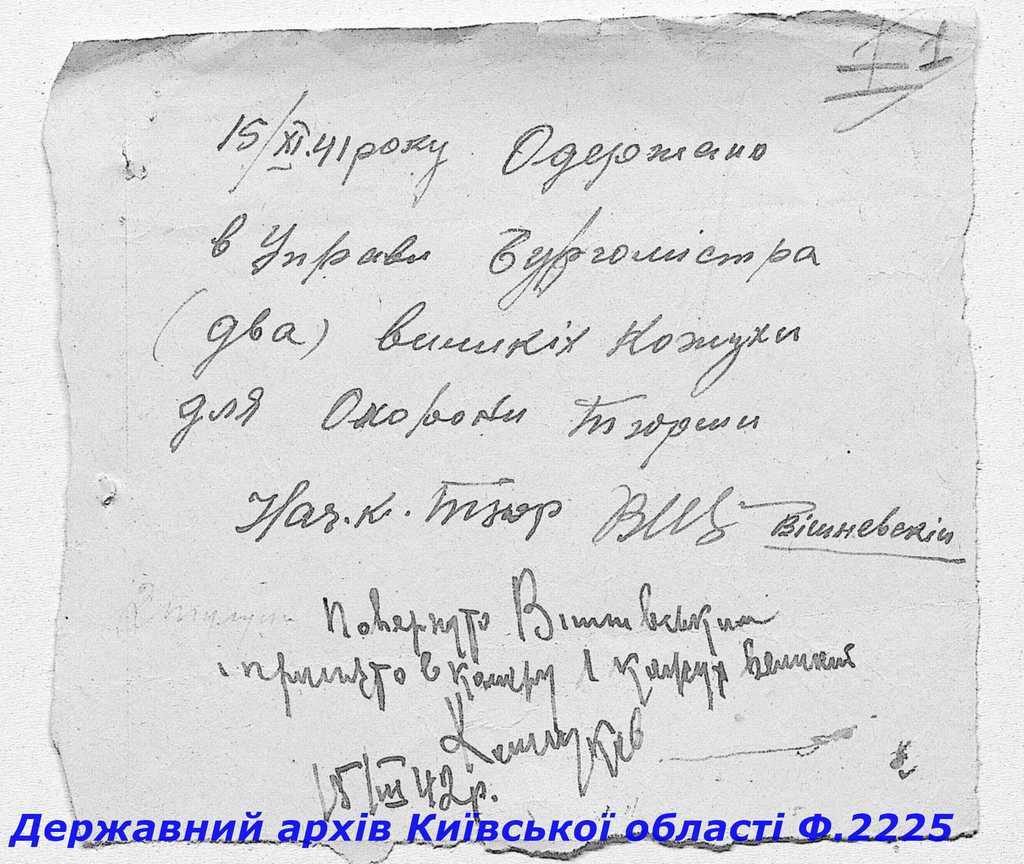 1
15/XI.41 року Одержано
в Управи Бургомістра
(два) великіх Кожухи
для Охорони Тюрми
Нач.к. Тюр Вішневскіи
Повернуто Вишневським
і прийнято в камеру 1 кожух великий
15/III 42 р.
Державний архів Київської області Ф.2225